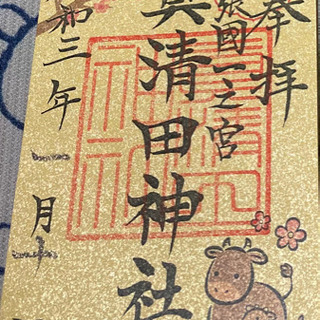 奉拝
張國一之宮
真清田神社
令和三年
月